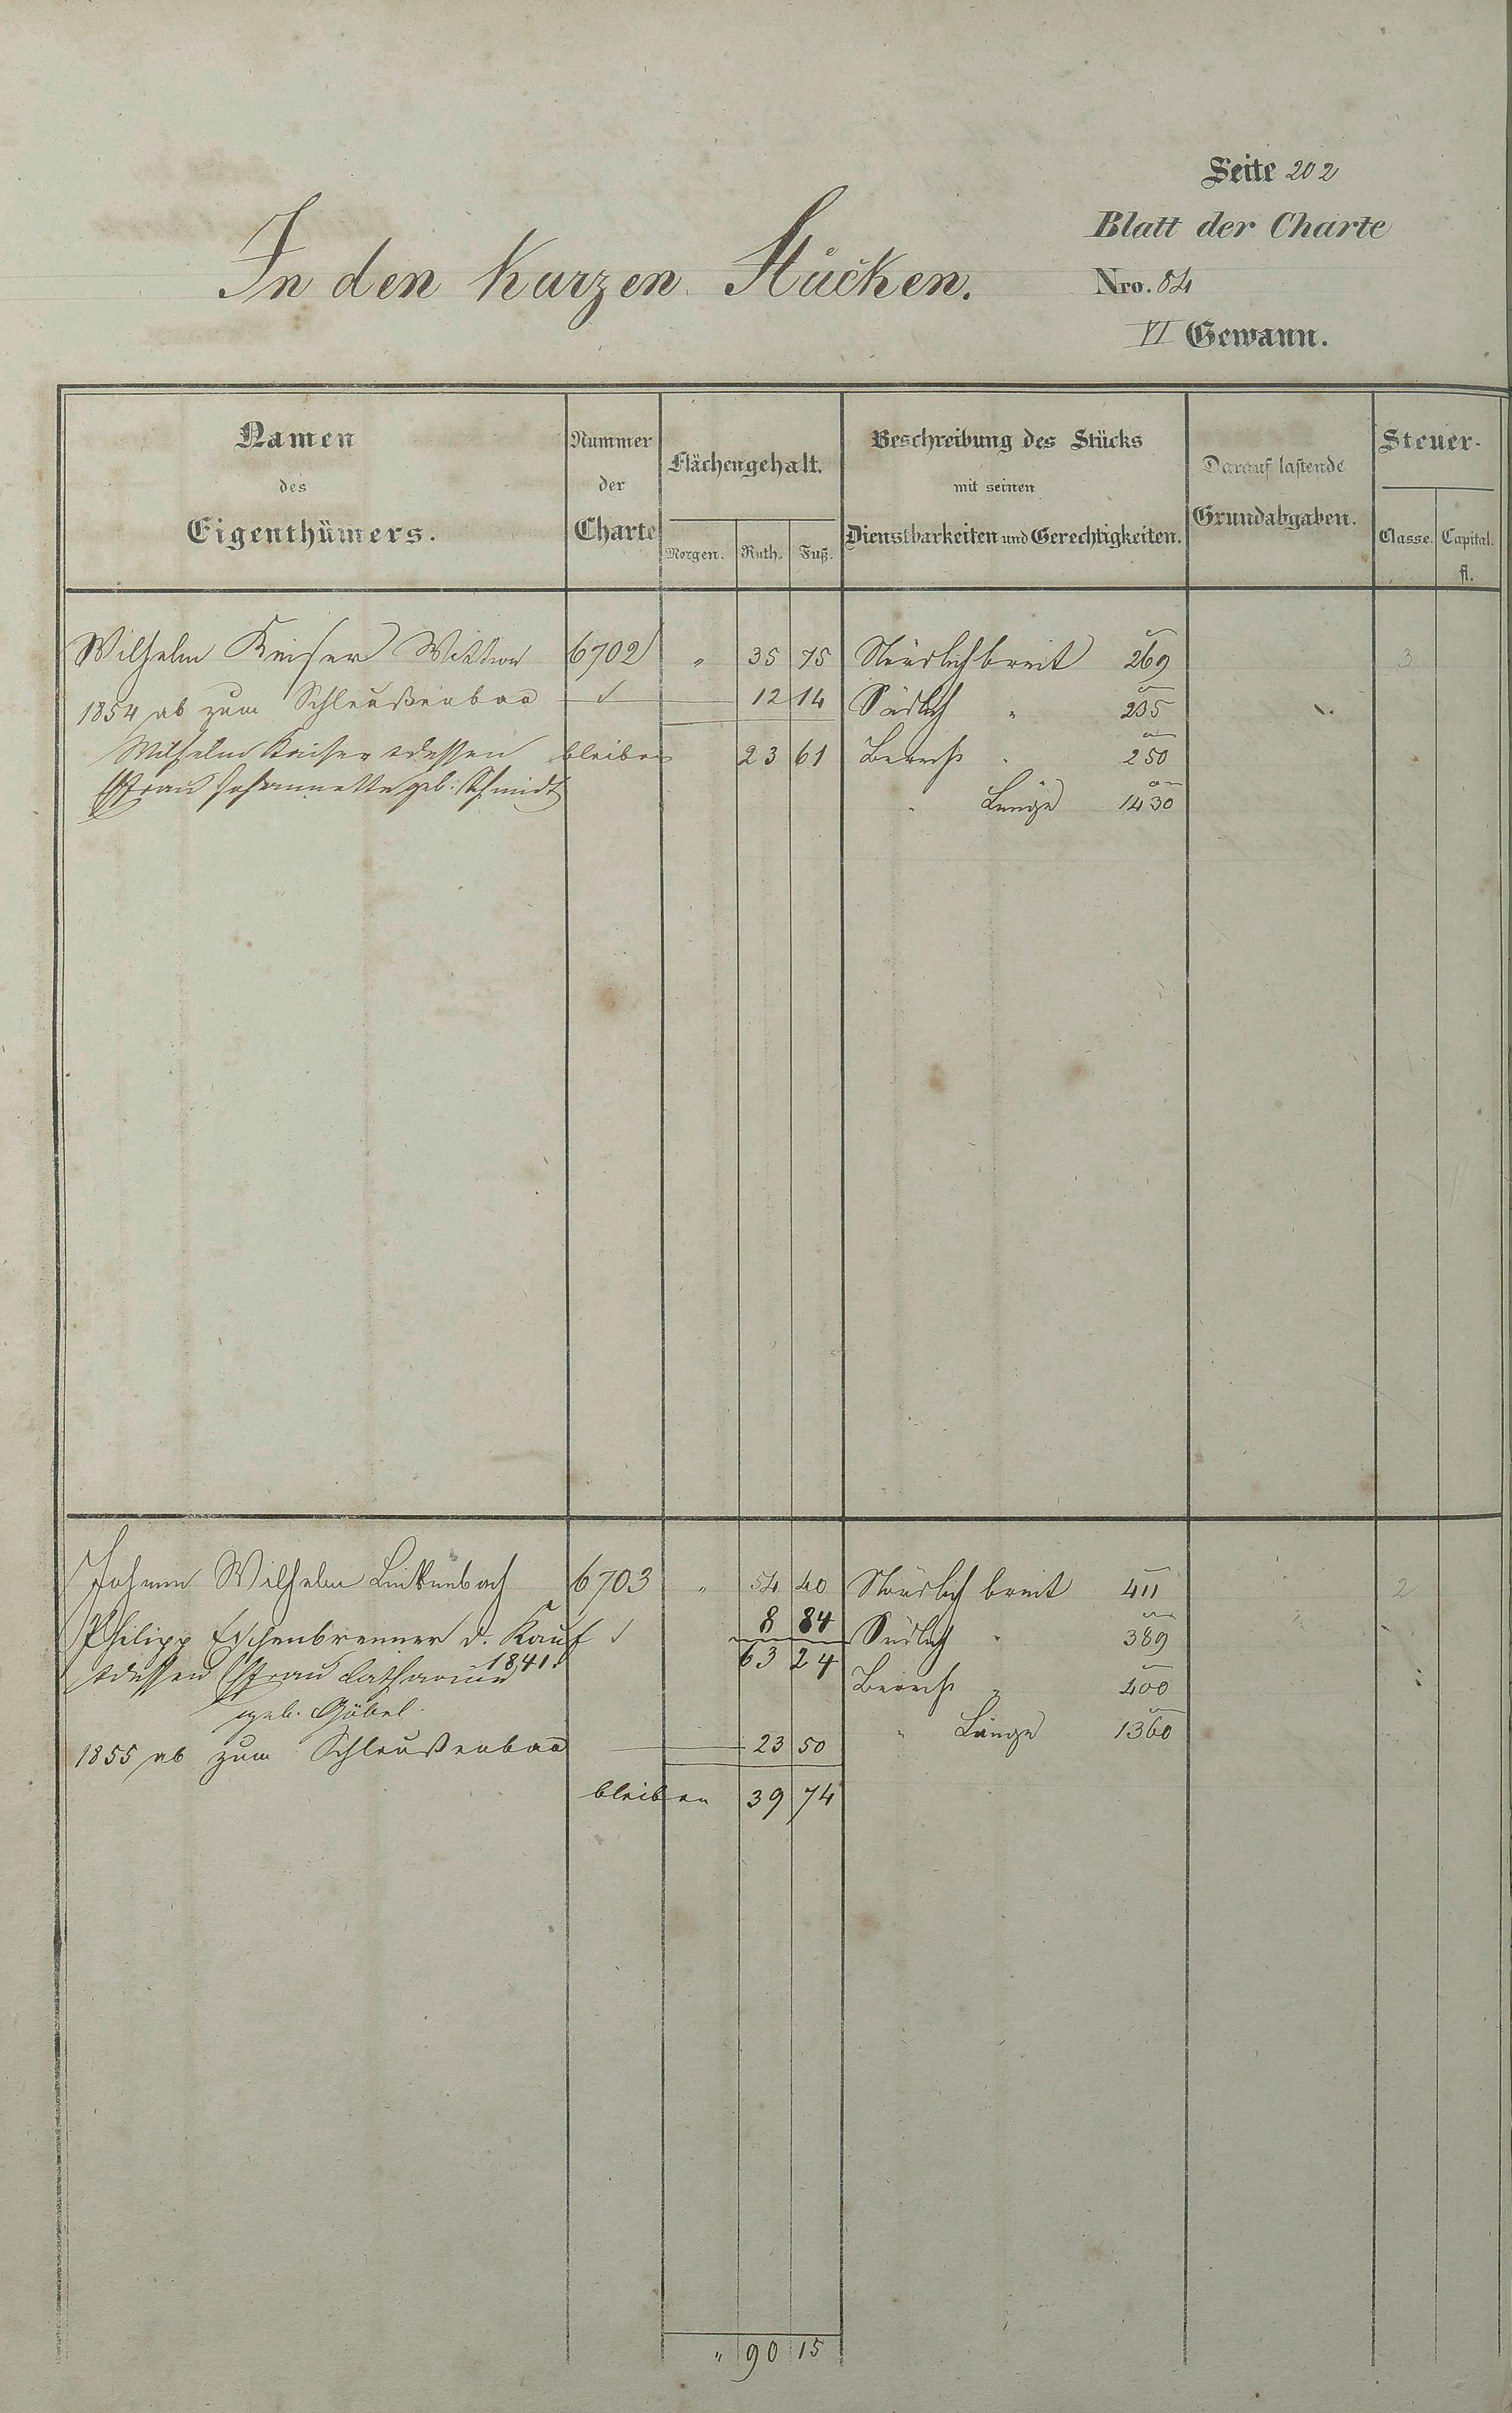 Seite 202
Blatt der Charte
In den kurzen Stücken.
Nro. 54
VI Gewann.
Namen des Eigenthümers.
Nummer der Charte
Flächengehalt.
Morgen. Ruth. Fuß.
Beschreibung des Stücks mit seinen Dienstbarkeiten und Gerechtigkeiten.
Darauf lastende Grundabgaben.
Steuer-
Classe. Capital. fl.
Wilhelm Keiser Wittwe 6702 " 35 75 Nördlich breit 269 3
1854 ab zum Schleußenbau 12 14 Südlich " 235
Wilhelm Keiser & dessen bleiben 23 61 Berech " 250
Efrau Johannette geb. Schmidt " Länge 1430
Johann Wilhelm Linkenbach 6703 " 54 40 Nördlich breit 411 2
Philipp Eschenbrenner d. Kauf 8 84 Südlich " 389
1841.
& dessen Efrau Catharina 63 24 Berech " 400
geb. Göbel. " Länge 1360
1855 ab zum Schleußenbau 23 50
bleiben 39 74
" 90 15